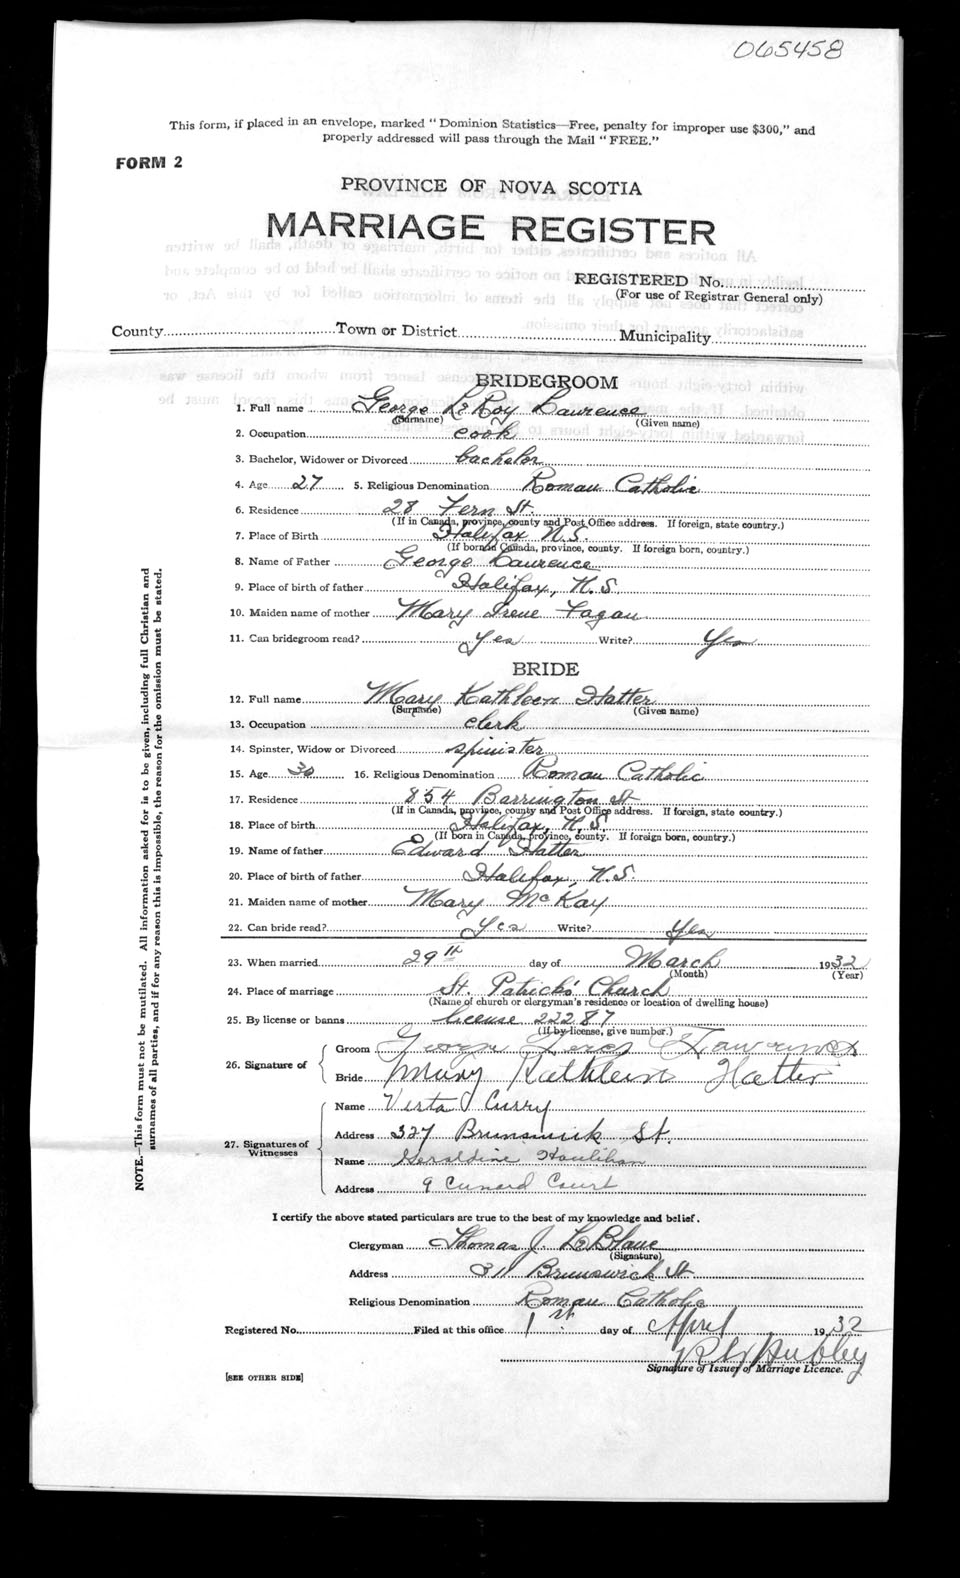 065458
This form, if placed in an envelope, marked "Dominion Statistics—Free, penalty for improper use $300," and
properly addressed will pass through the Mail "FREE."
FORM 2
PROVINCE OF NOVA SCOTIA
MARRIAGE REGISTER
REGISTERED No.
(For use of Registrar General only)
County Town or District Municipality
BRIDEGROOM
1. Full name George LeRoy Laurence
(Surname) (Given name)
2. Occupation cook
3. Bachelor, Widower or Divorced bachelor
4. Age 27 5. Religious Denomination Roman Catholic
6. Residence 28 Fern St.
(If in Canada, province, county and Post Office address. If foreign, state country.)
7. Place of Birth Halifax N.S.
(If born in Canada, province, county. If foreign born, country.)
8. Name of Father George Laurence
9. Place of birth of father Halifax, N.S.
10. Maiden name of mother Mary Irene Fagan
11. Can bridegroom read? Yes Write? Yes
BRIDE
12. Full name Mary Kathleen Hatter
(Surname) (Given name)
13. Occupation clerk
14. Spinster, Widow or Divorced spinister
15. Age 30 16. Religious Denomination Roman Catholic
17. Residence 854 Barrington St
(If in Canada, province, county and Post Office address. If foreign, state country.)
18. Place of birth Halifax, N.S.
(If born in Canada, province, county. If foreign born, country.)
19. Name of father Edward Hatter
20. Place of birth of father Halifax, N.S.
21. Maiden name of mother Mary McKay
22. Can bride read? Yes Write? Yes
23. When married 29th day of March 1932
(Month) (Year)
24. Place of marriage St. Patrick's Church
(Name of church or clergyman's residence or location of dwelling house)
25. By license or banns license 22287
(If by license, give number.)
26. Signature of
Groom George Laurence
Bride Mary Kathleen Hatter
27. Signatures of Witnesses
Name Curry
Address 327 Brunswick St.
Name Geraldine Houlihan
Address 9 Cunard Court
I certify the above stated particulars are true to the best of my knowledge and belief.
Clergyman Thomas J. LeBlanc
(Signature)
Address 311 Brunswick St
Religious Denomination Roman Catholic
Registered No. Filed at this office 1st day of April 1932
Hubley
Signature of Issuer of Marriage Licence.
[SEE OTHER SIDE]
NOTE.—This form must not be mutilated. All information asked for is to be given, including full Christian and
surnames of all parties, and if for any reason this is impossible, the reason for the omission must be stated.